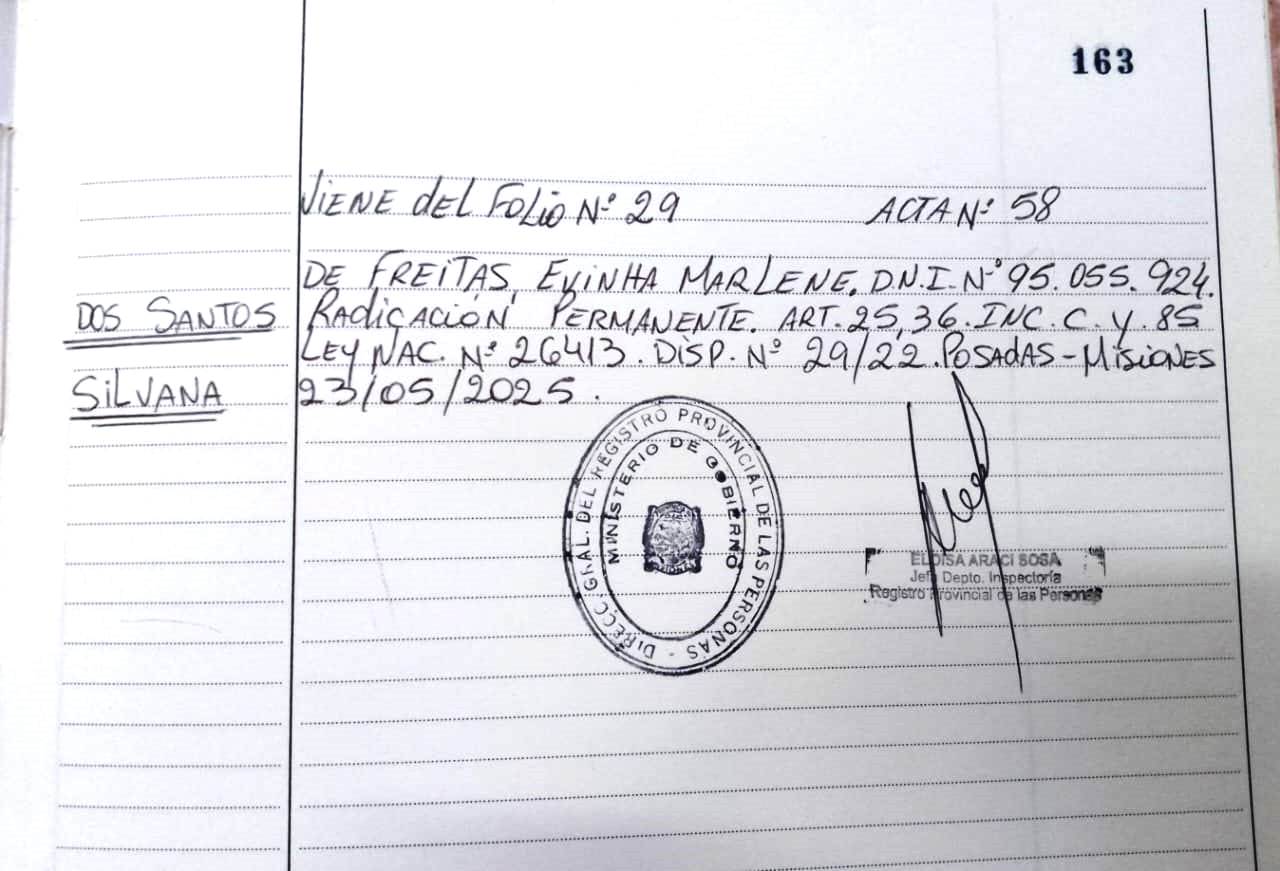 163
Viene del Folio Nº 29 ACTA Nº 58
DE FREITAS, EVINHA MARLENE. D.N.I. Nº 95.055.924.
DOS SANTOS
Radicación PERMANENTE. ART. 25, 36. INC. C. y. 85
LEY NAC. Nº 26413. DISP. Nº 29/22. POSADAS - MISIONES
SILVANA
23/05/2025.
DIRECC. GRAL. DEL REGISTRO PROVINCIAL DE LAS PERSONAS -
MINISTERIO DE GOBIERNO
ELOISA ARACI SOSA
Jefa Depto. Inspectoría
Registro Provincial de las Personas